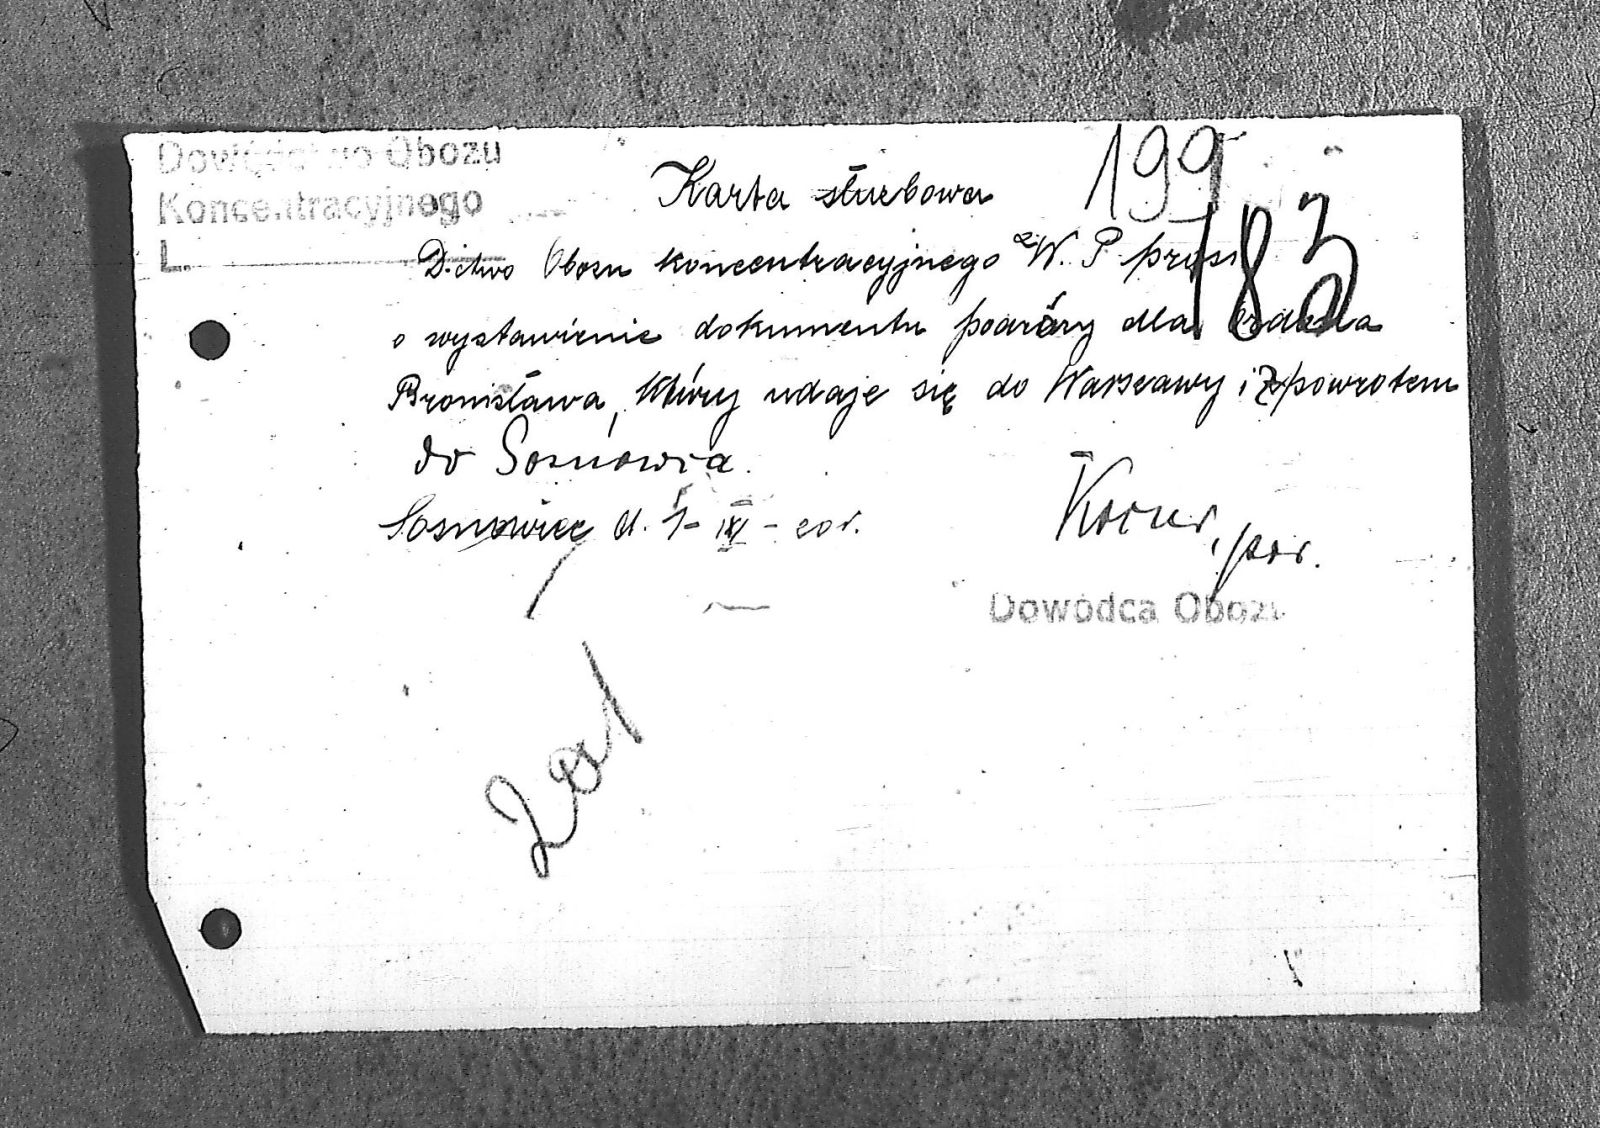 Dowództwo Obozu
Koncentracyjnego
L.
199
183
Karta służbowa
D-ctwo Obozu koncentracyjnego W. P prosi
o wystawienie dokumentu podróży dla
Bronisława, który udaje się do Warszawy i z powrotem
do Sosnowca.
Sosnowiec d. 1- XI - 20 r.
por.
Dowódca Obozu
201